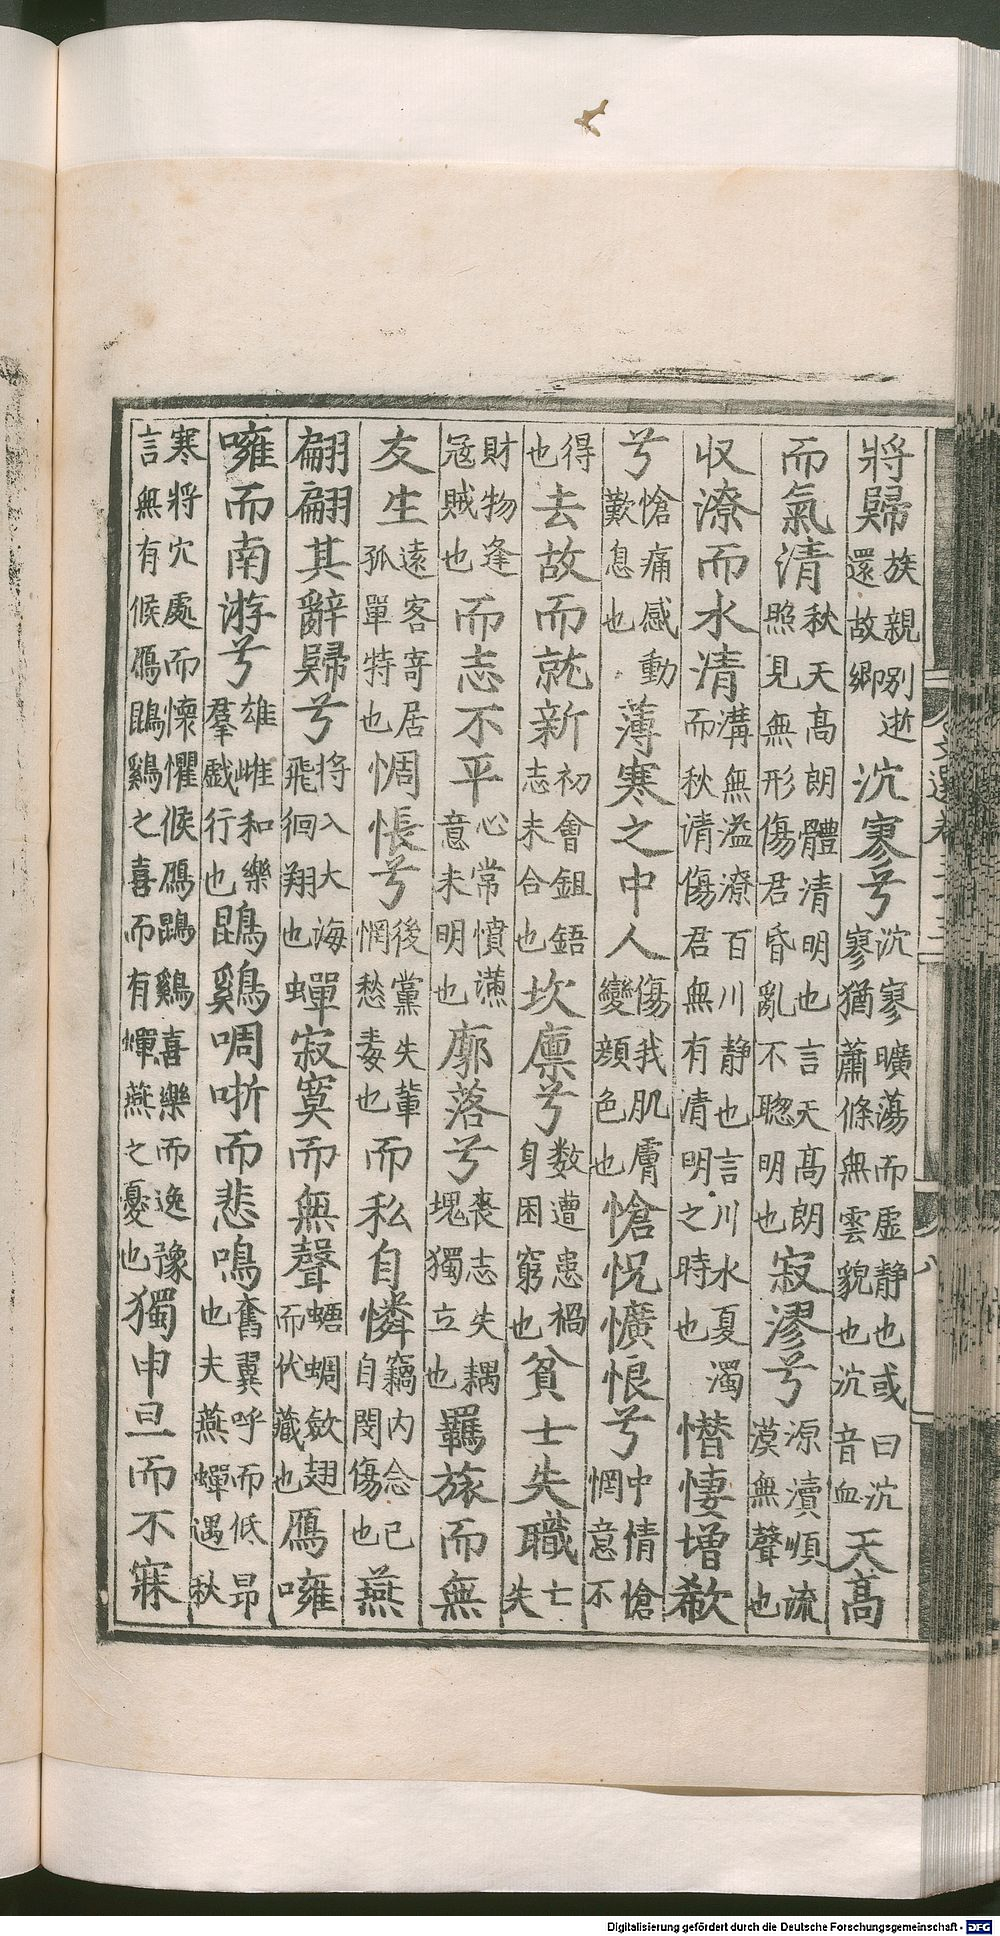 將歸族親別逝還故鄉泬寥兮泬寥曠蕩而虛静也或曰泬寥猶蕭條無雲貌也泬音血天髙
而氣清秋天髙朗體清明也言天髙朗照見無形傷君昏亂不聦明也寂漻兮源瀆順流漠無聲也
収潦而水清溝無溢潦百川静也言川水夏濁而秋清傷君無有清明之時也憯悽增欷
兮愴痛感動歎息也薄寒之中人傷我肌膚變顔色也愴怳懭悢兮中情愴惘意不
得也去故而就新初會鉏鋙志未合也坎廩兮数遭患禍身困窮也貧士失職亡失
財物逢冦賊也而志不平心常憤懣意未明也廓落兮喪志失耦塊獨立也羈旅而無
友生遠客寄居孤單特也惆悵兮後黨失輩惘愁毒也而私自憐竊内念己自閔傷也燕
翩翩其辭歸兮將入大海飛徊翔也蟬寂寞而無聲蟋蜩斂翅而伏藏也鴈噰
噰而南游兮雄雌和樂羣戲行也鵾鷄啁哳而悲鳴奮翼呼而低昂也夫燕蟬遇秋
寒將穴處而懷懼候鴈鵾鷄喜樂而逸豫言無有候鴈鵾鷄之喜而有蟬燕之憂也獨申旦而不寐
文選卷三十三
八
Digitalisierung gefördert durch die Deutsche Forschungsgemeinschaft - DFG